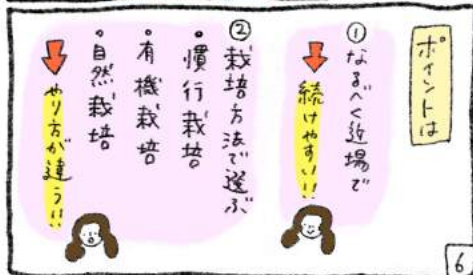 ポイントは
①なるべく近場で
続けやすい!!
②栽培方法で選ぶ
・慣行栽培
・有機栽培
・自然栽培
やり方が違う!!
6